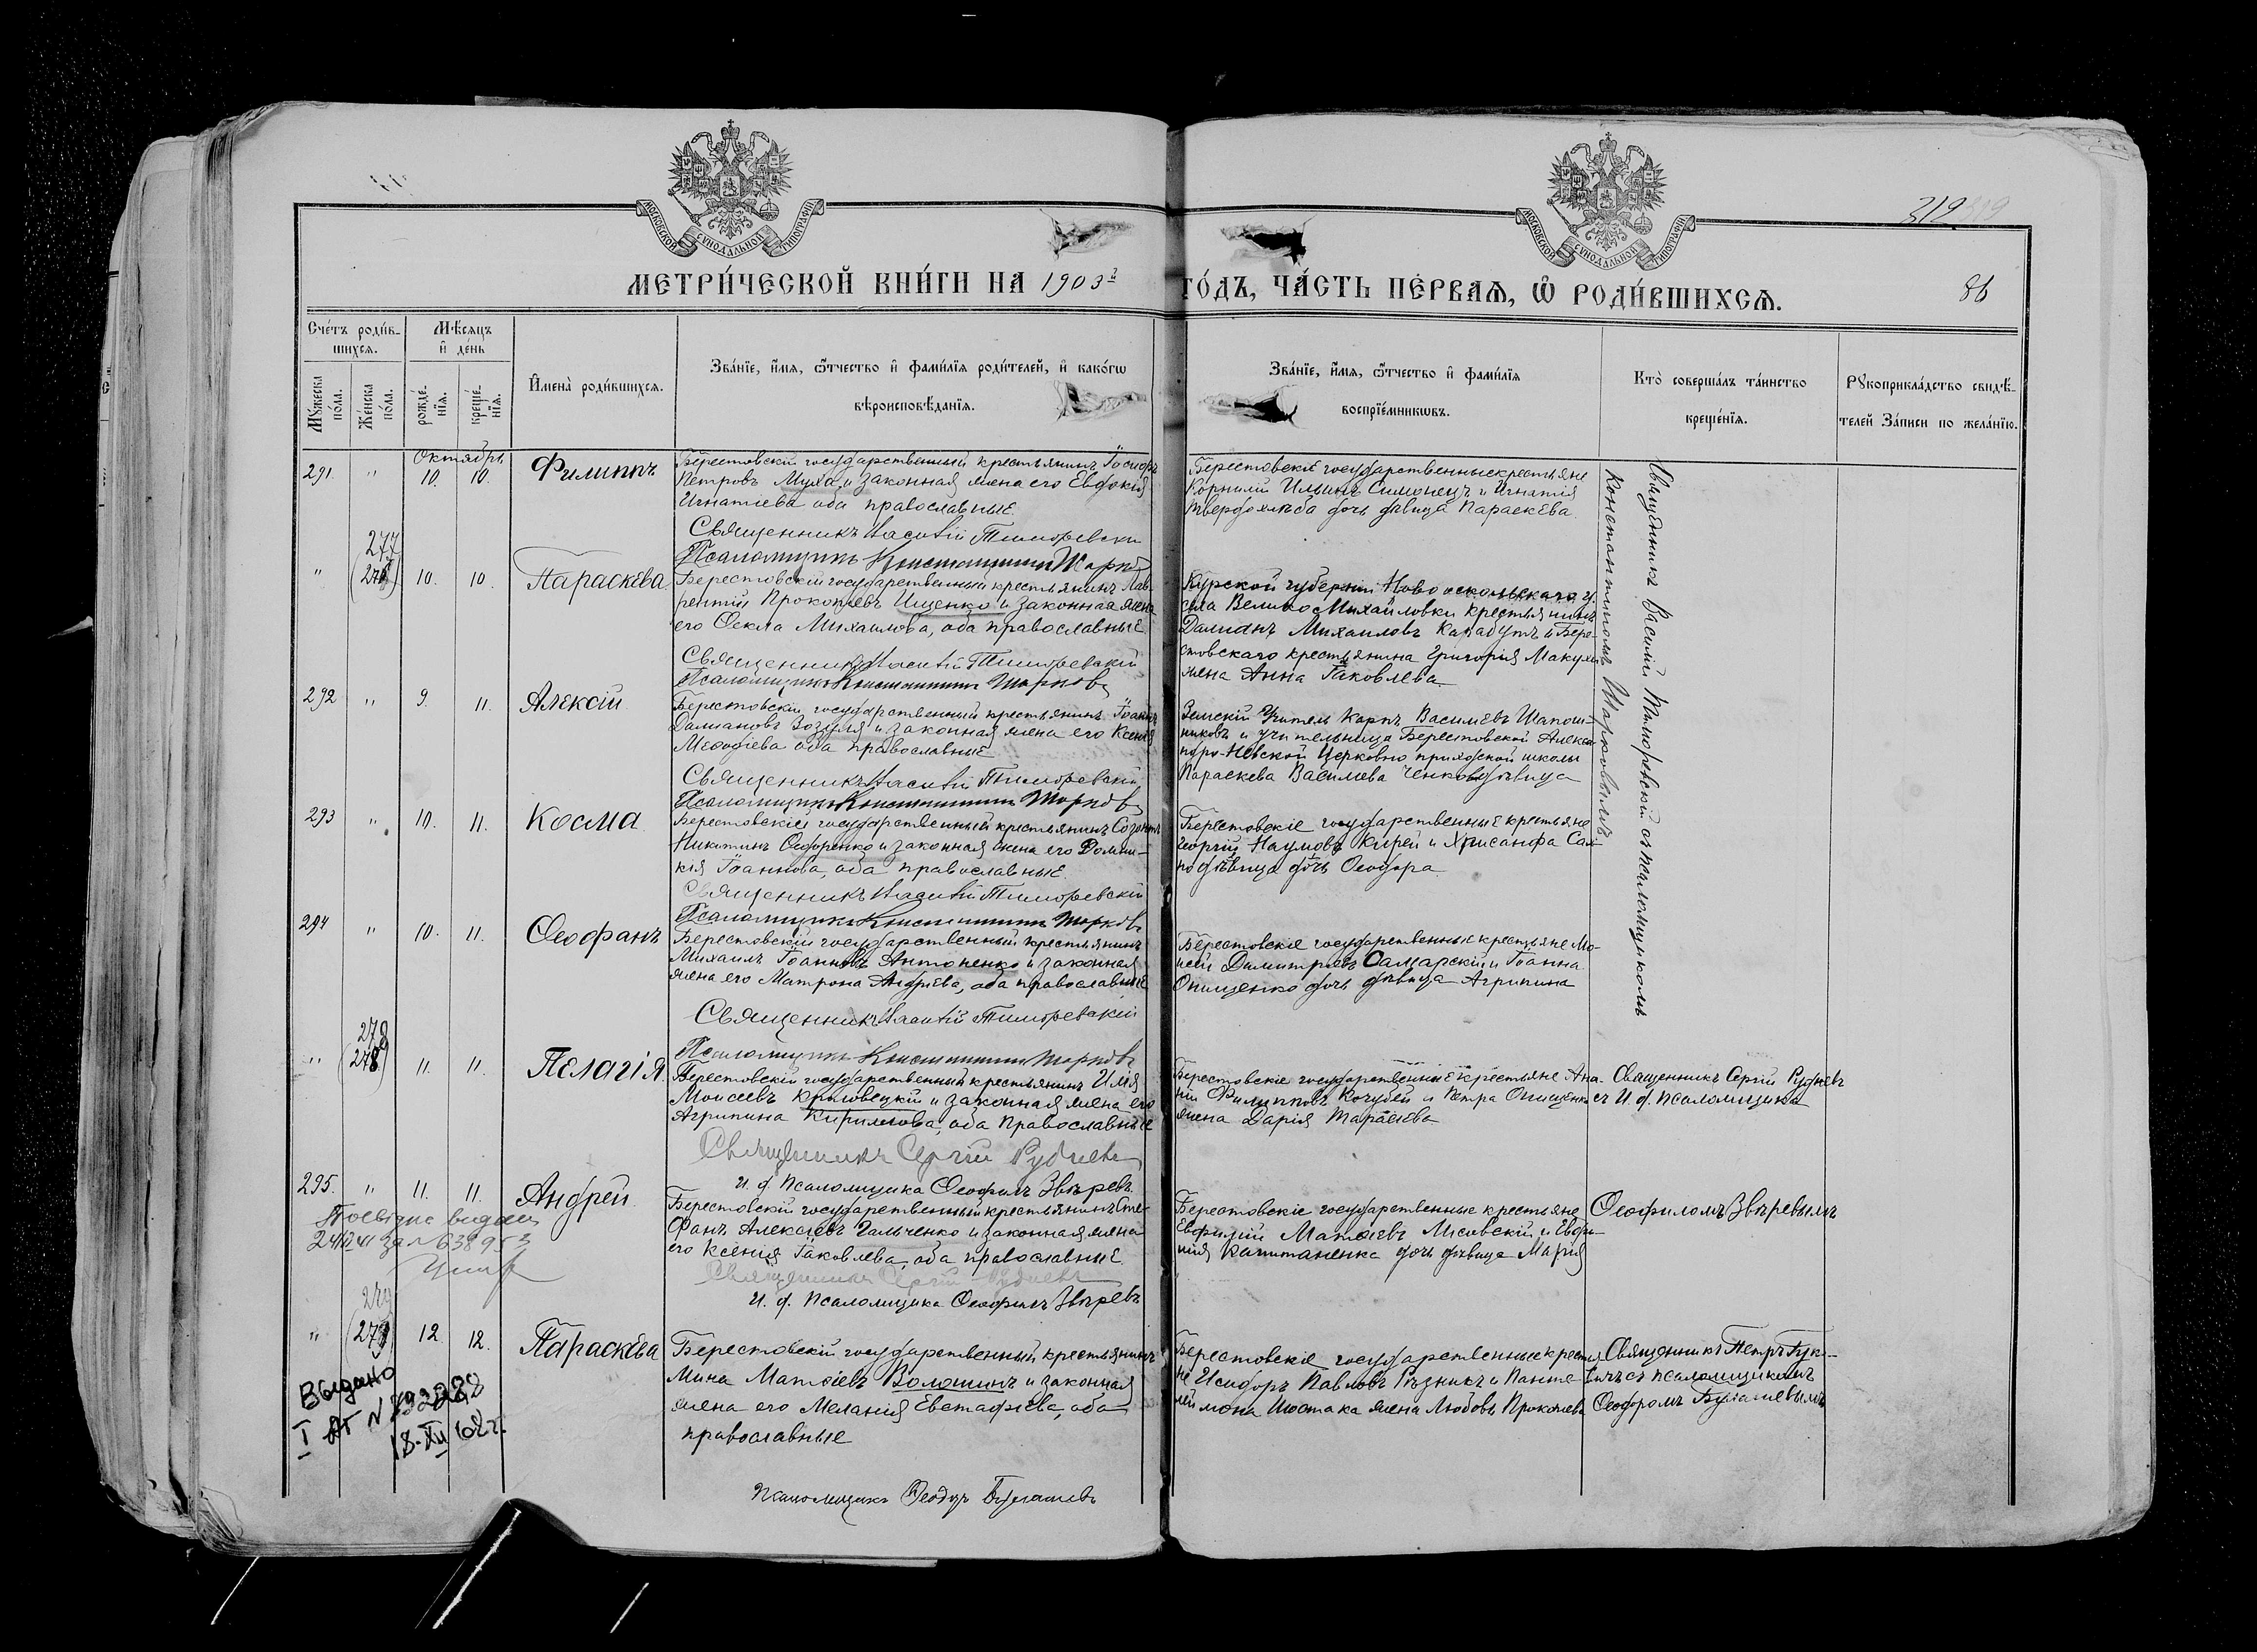 МОСКОВСКОЙ СѴНОДАЛЬНОЙ ТИПОГРАФІИ
МОСКОВСКОЙ СѴНОДАЛЬНОЙ ТИПОГРАФІИ
319
МЕТРИ́ЧЕСКОЙ КНИ́ГИ НА 1903 ГО́ДЪ, ЧА́СТЬ ПЕ́РВАѦ, Ѡ҆ РОДИ́ВШИХСѦ.
86
Сче́тъ роди́в-
шихсѧ.
Мѣ́сѧцъ
и҆ де́нь
Мꙋ́жеска по́ла.
Же́нска по́ла.
рожде́-
нїѧ.
креще́-
нїѧ.
И҆мена̀ роди́вшихсѧ.
Зва́нїе, и҆́мѧ, ѻ҆́тчество и҆ фами́лїѧ роди́телей, и҆ како́гѡ
вѣроисповѣ́данїѧ.
Зва́нїе, и҆́мѧ, ѻ҆́тчество и҆ фами́лїѧ
воспрїе́мникѡвъ.
Кто̀ соверша́лъ та́инство
креще́нїѧ.
Рꙋкоприкла́дство свидѣ́-
телей За́писи по жела́нїю.
Октябрь
291. " 10. 10. Филиппъ
Берестовскій государственный крестьянинъ Іосифъ
Петровъ Муха и законная жена его Евдокія
Игнатіева оба православные.
Священникъ Василій Тиморевскій
Псаломщикъ Константинъ Шарковъ
Берестовскіе государственные крестьяне
Корнилій Ильинъ Симонецъ и Игнатія
Твердохлѣба дочь дѣвица Параскева.
Священникъ Василій Тиморевскій съ псаломщикомъ
Константиномъ Шарковымъ.
277
" (278) 10. 10. Параскева
Берестовскій государственный крестьянинъ Лав-
рентій Прокопіевъ Ищенко и законная жена
его Ѳекла Михаилова, оба православные
Священникъ Василій Тиморевскій
Псаломщикъ Константинъ Шарковъ
Курской губерніи Новооскольскаго у.
села Велико Михайловки крестьянинъ
Даміанъ Михаиловъ Карабутъ и Бере-
стовскаго крестьянина Григорія Макухи
жена Анна Іаковлева.
292 " 9. 11. Алексій
Берестовскій государственный крестьянинъ Іоаннъ
Даміановъ Зозуля и законная жена его Ксенія
Меѳодіева оба православные
Священникъ Василій Тиморевскій
Псаломщикъ Константинъ Шарковъ
Земскій Учитель Карпъ Васильевъ Шапош-
никовъ и учительница Берестовской Алексан-
дро-Невской Церковно приходской школы
Параскева Василіева Ченкова дѣвица
293 " 10. 11. Косма
Берестовскій государственный крестьянинъ Созонтъ
Никитинъ Ѳедоренко и законная жена его Домни-
кія Іоаннова, оба православные.
Священникъ Василій Тиморевскій
Псаломщикъ Константинъ Шарковъ
Берестовскіе государственные крестьяне
Георгій Наумовъ Кирей и Хрисанфа Сай-
ко дѣвица дочь Ѳеодора.
294 " 10. 11. Ѳеофанъ
Берестовскій государственный крестьянинъ
Михаилъ Іоанновъ Антоненко и законная
жена его Матрона Андріева, оба православные
Священникъ Василій Тиморевскій
Псаломщикъ Константинъ Шарковъ
Берестовскіе государственные крестьяне Мо-
исей Димитріевъ Самарскій и Іоанна
Онищенко дочь дѣвица Агрипина
278
" 11. 11. Пелагія
Берестовскій государственный крестьянинъ Илія
Моисеевъ Криловецкій и законная жена его
Агрипина Кириллова, оба православные
Священникъ Сергій Рудневъ
И. д. псаломщика Ѳеофилъ Звѣревъ.
Берестовскіе государственные крестьяне Ана-
ній Филипповъ Кочубей и Петра Онищенка
жена Дарія Тарасіева
Священникъ Сергій Рудневъ
съ И. д. псаломщика
295. " 11. 11. Андрей
Берестовскій государственный крестьянинъ Сте-
фанъ Алексіевъ Гальченко и законная жена
его Ксенія Іаковлева, оба православные.
Священникъ Сергій Рудневъ
И. д. псаломщика Ѳеофилъ Звѣревъ
Берестовскіе государственные крестьяне
Евфимій Матѳіевъ Лисивскій и Евфи-
мія Капитаненка дочь дѣвица Марія
Ѳеофиломъ Звѣревымъ
279
" 12. 12. Параскева
Берестовскій государственный крестьянинъ
Мина Матѳіевъ Волошинъ и законная
жена его Меланія Евстафіева, оба
православные
Псаломщикъ Ѳеодоръ Булашевъ
Берестовскіе государственные крестья-
не Исидоръ Павловъ Рѣзникъ и Панте-
леймона Шостака жена Любовь Прокопіева
Священникъ Петръ
съ псаломщикомъ
Ѳеодоромъ Булашевымъ
Выдано